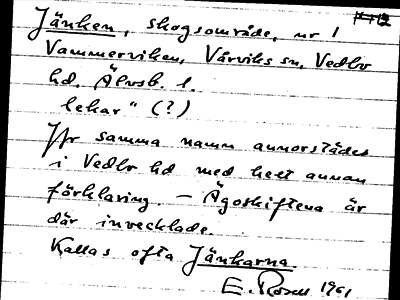 Jänken, skogsområde, nr 1
Vammerviken, Vårviks sn, Vedbo
hd. Älvsb. l.
lekar" (?)
Jfr samma namn annorstädes
i Vedbo hd med helt annan
förklaring. — Ägoskiftena är
där invecklade.
Kallas ofta Jänkarna.
E. Rosell 1961